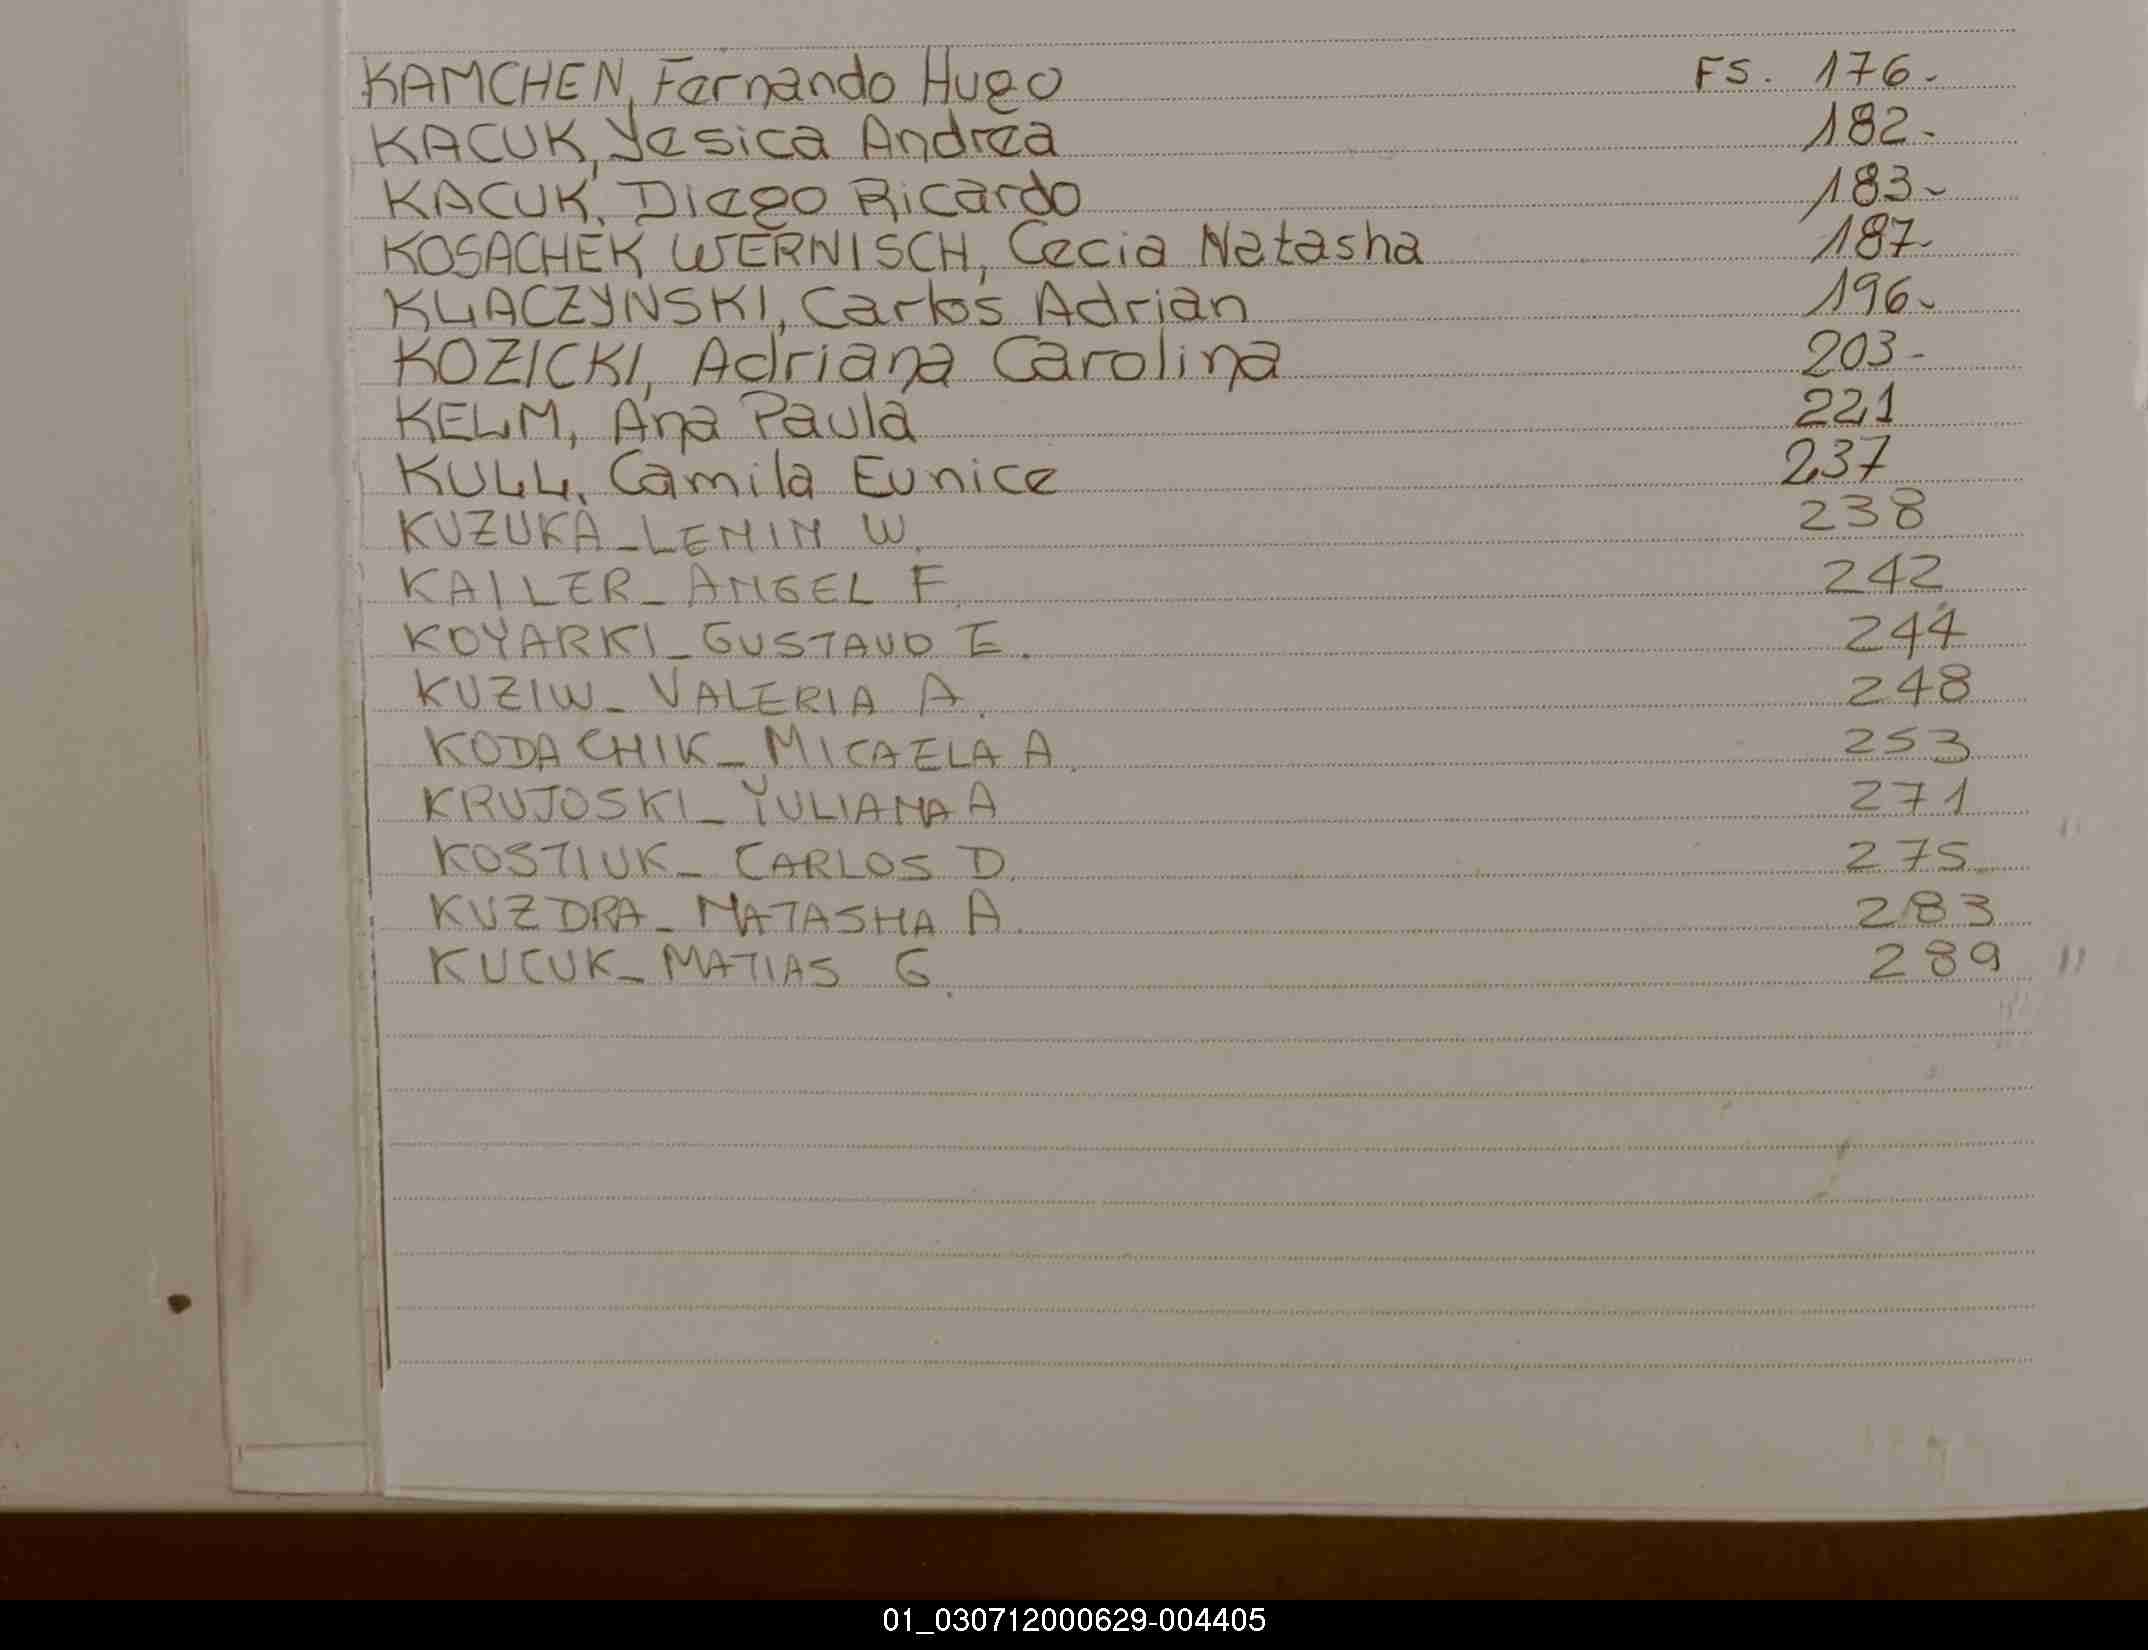 KAMCHEN, Fernando Hugo FS. 176.-
KACUK, Yesica Andrea 182.-
KACUK, Diego Ricardo 183-
KOSACHEK WERNISCH, Cecia Natasha 187-
KLACZYNSKI, Carlos Adrian 196-
KOZICKI, Adriana Carolina 203-
KELM, Ana Paula 221
KULL, Camila Eunice 237
KUZUKA_LENIN W. 238
KAILER_ANGEL F. 242
KOYARKI_GUSTAVO E. 244
KUZIW_VALERIA A. 248
KODACHIK_MICAELA A. 253
KRUJOSKI_YULIANA A 271
KOSTIUK_CARLOS D. 275
KUZDRA_NATASHA A. 283
KUCUK_MATIAS G. 289 "
01_030712000629-004405